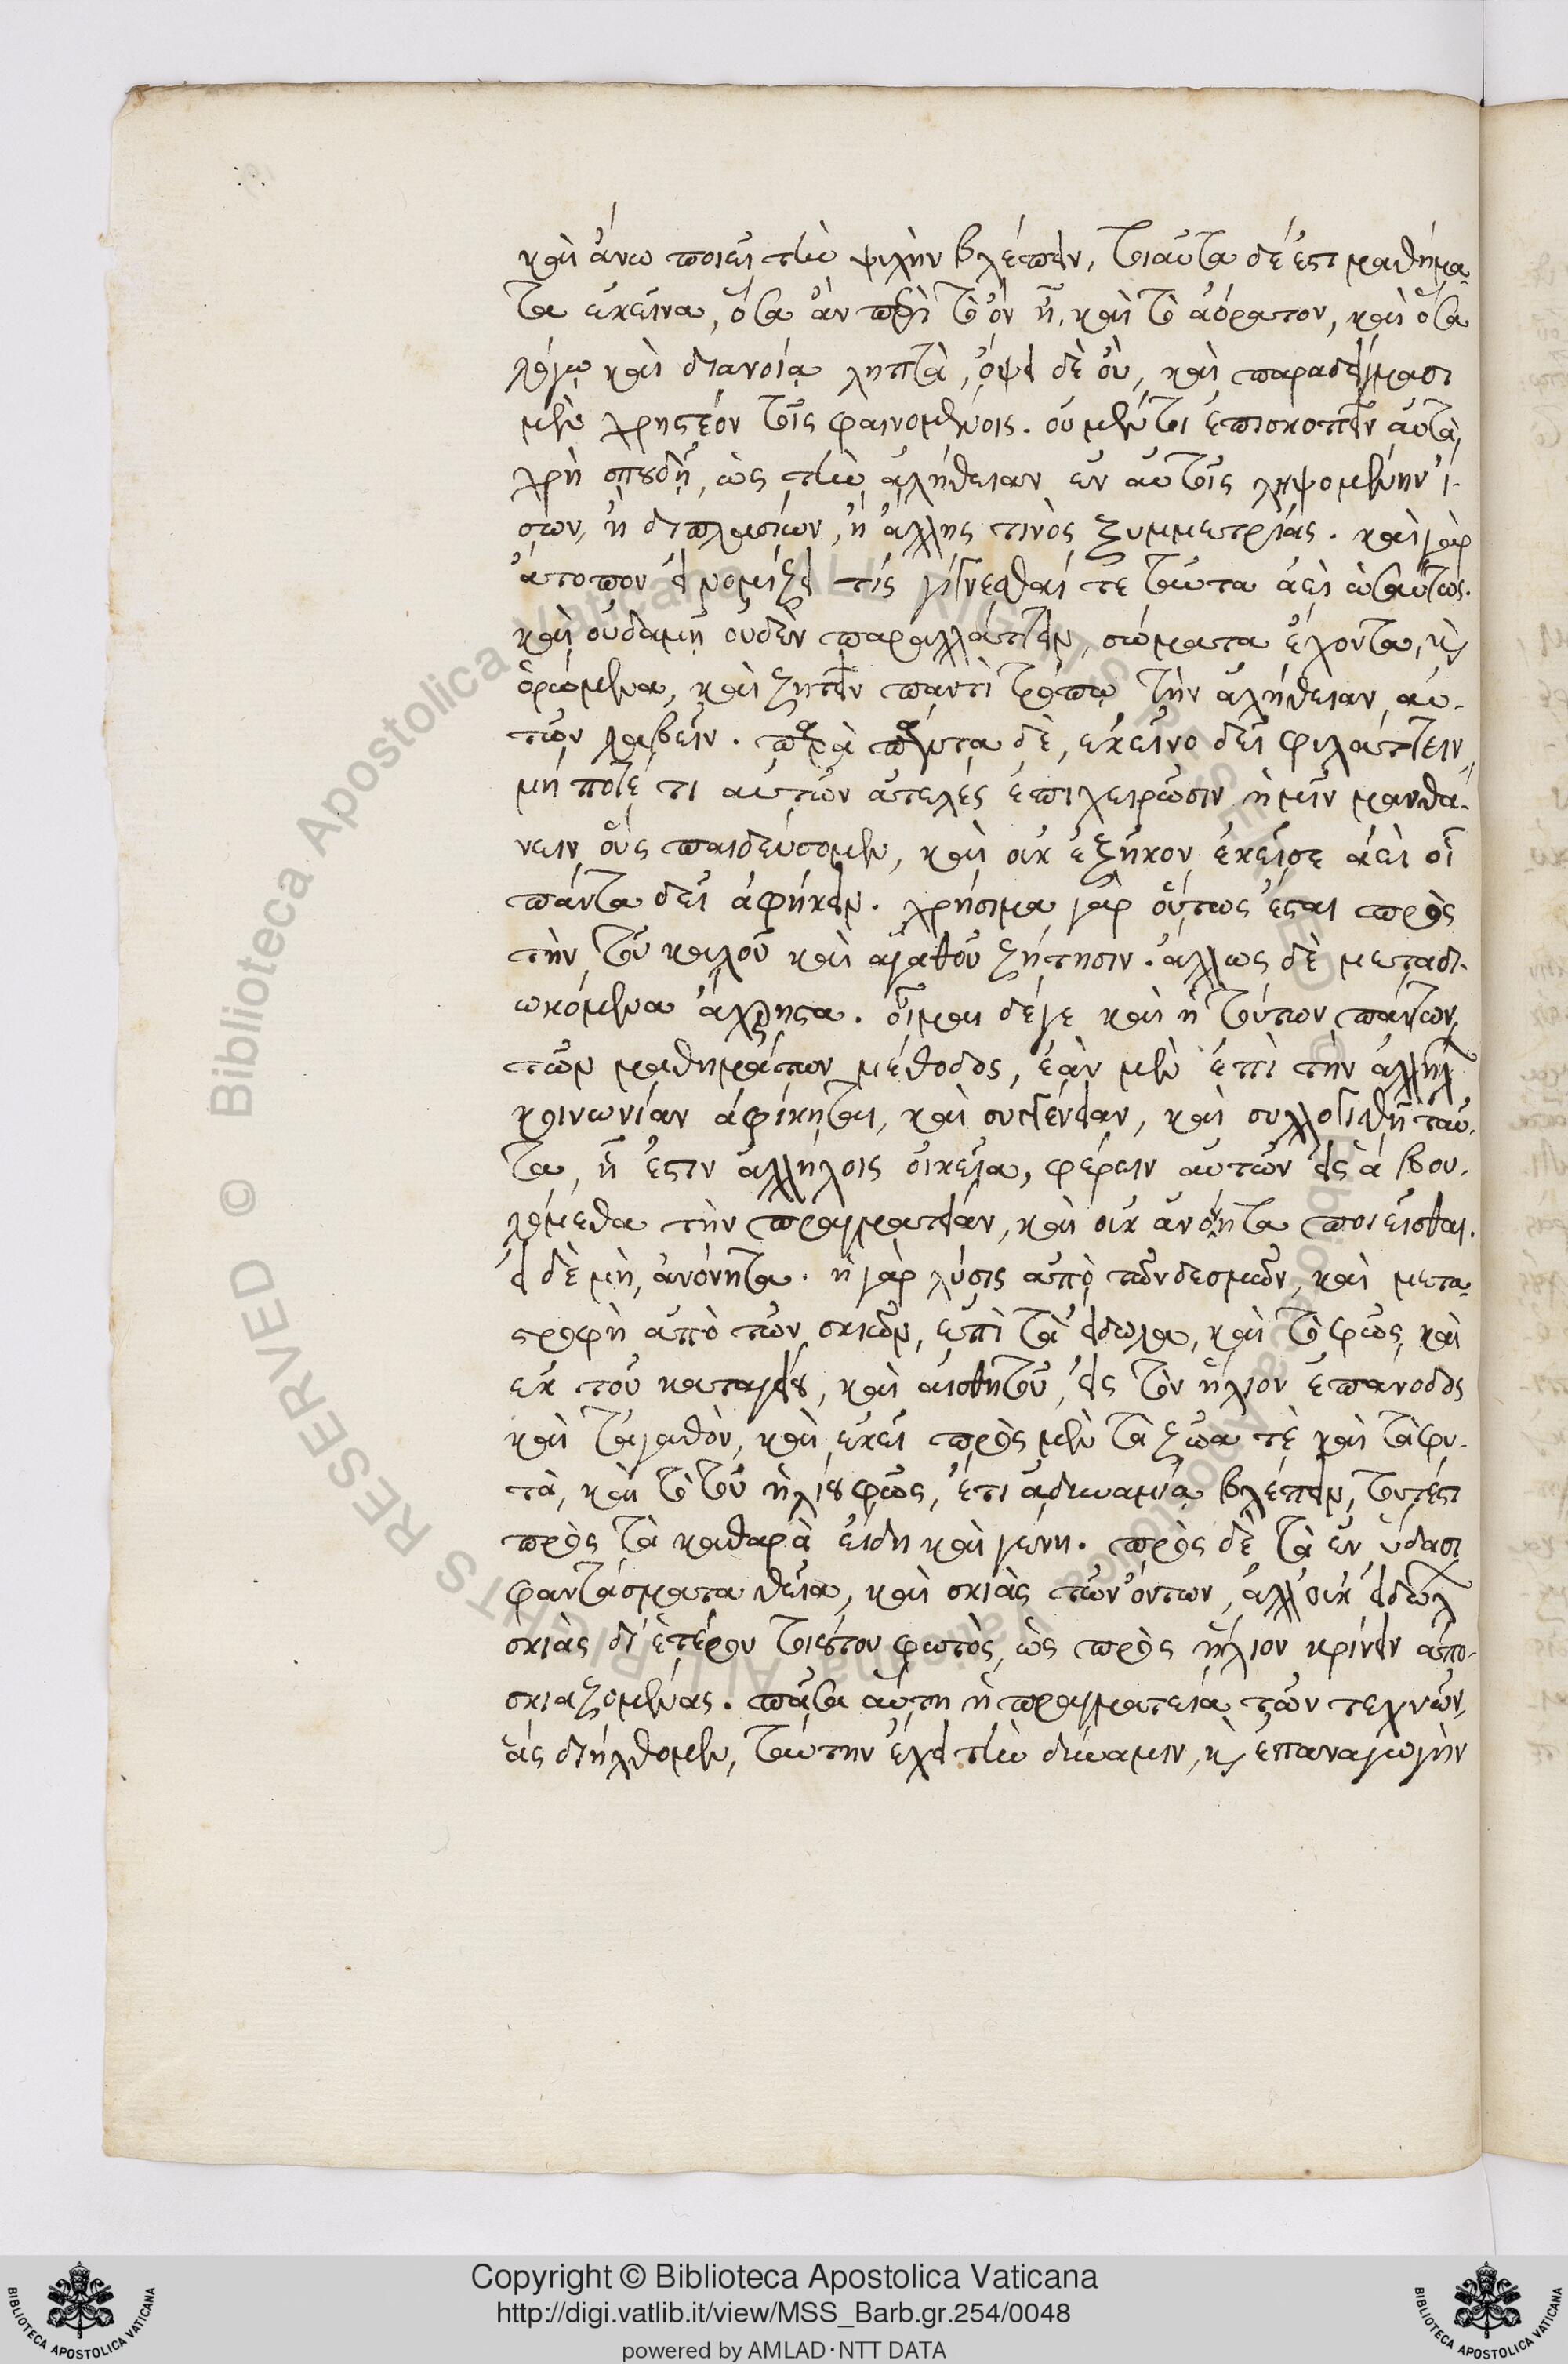 καὶ ἄνω ποιεῖ τὴν ψυχὴν βλέπειν, τοιαῦτα δέ ἐστι μαθήμα-
τα ἐκεῖνα, ὅσα ἂν περὶ τὸ ὂν ᾖ, καὶ τὸ ἀόρατον, καὶ ὅσα
λόγῳ καὶ διανοίᾳ ληπτὰ, ὄψει δὲ οὐ, καὶ παραδείγμασι
μὲν χρηστέον τοῖς φαινομένοις. οὐ μέντοι ἐπισκοπεῖν αὐτὰ,
χρὴ σπουδῇ, ὡς τὴν ἀλήθειαν ἐν αὐτοῖς ληψομένην ἴ-
σων, ἢ διπλασίων, ἢ ἄλλης τινὸς ξυμμετρίας. καὶ γὰρ
ἄτοπον εἰ νομίζει τίς γίγνεσθαί τε ταῦτα ἀεὶ ὡσαύτως.
καὶ οὐδαμῇ οὐδὲν παραλλάττειν, σώματα ἔχοντα, καὶ
ὁρώμενα, καὶ ζητεῖν παντὶ τρόπῳ τὴν ἀλήθειαν αὐ-
τῶν λαβεῖν. παρὰ πάντα δὲ, ἐκεῖνο δεῖ φυλάττειν,
μή ποτέ τι αὐτῶν ἀτελές ἐπιχειρῶσιν ἡμῖν μανθά-
νειν οὓς παιδεύσομεν, καὶ οὐκ ἐξῆκον ἐκεῖσε ἀεὶ οἷ
πάντα δεῖ ἀφήκειν. χρήσιμα γὰρ οὕτως ἔσται πρὸς
τὴν τοῦ καλοῦ καὶ ἀγαθοῦ ζήτησιν. ἄλλως δὲ μεταδι-
ωκόμενα ἄχρηστα. οἶμαι δέ γε καὶ ἡ τούτων πάντων
τῶν μαθημάτων μέθοδος, ἐὰν μὲν ἐπὶ τὴν ἀλλήλ
κοινωνίαν ἀφίκηται, καὶ συγγένειαν, καὶ συλλογισθῇ ταῦ-
τα, ᾗ ἐστιν ἀλλήλοις οἰκεῖα, φέρειν αὐτῶν εἰς ἃ βου-
λόμεθα τὴν πραγματείαν, καὶ οὐκ ἀνόνητα ποιεῖσθαι.
εἰ δὲ μὴ, ἀνόνητα. ἡ γὰρ λύσις ἀπὸ τῶν δεσμῶν, καὶ μετα-
στροφὴ ἀπὸ τῶν σκιῶν, ἐπὶ τὰ εἴδωλα, καὶ τὸ φῶς, καὶ
ἐκ τοῦ καταγείου, καὶ αἰσθητοῦ, εἰς τὸν ἥλιον ἐπάνοδος
καὶ τἀγαθὸν, καὶ ἐκεῖ πρὸς μὲν τὰ ζῶα τὲ καὶ τὰ φυ-
τὰ, καὶ τὸ τοῦ ἡλίου φῶς, ἔτι ἀδυναμία βλέπειν, τουτέστι
πρὸς τὰ καθαρὰ εἴδη καὶ γένη. πρὸς δὲ τὰ ἐν ὕδασι
φαντάσματα θεῖα, καὶ σκιὰς τῶν ὄντων, ἀλλ' οὐκ εἰδώλ
σκιὰς δι' ἑτέρου τοιούτου φωτὸς, ὡς πρὸς ἥλιον κρίνειν ἀπο-
σκιαζομένας. πᾶσα αὕτη ἡ πραγματεία τῶν τεχνῶν,
ἃς διήλθομεν, ταύτην ἔχει τὴν δύναμιν, καὶ ἐπαναγωγὴν
Copyright © Biblioteca Apostolica Vaticana
http://digi.vatlib.it/view/MSS_Barb.gr.254/0048
powered by AMLAD·NTT DATA